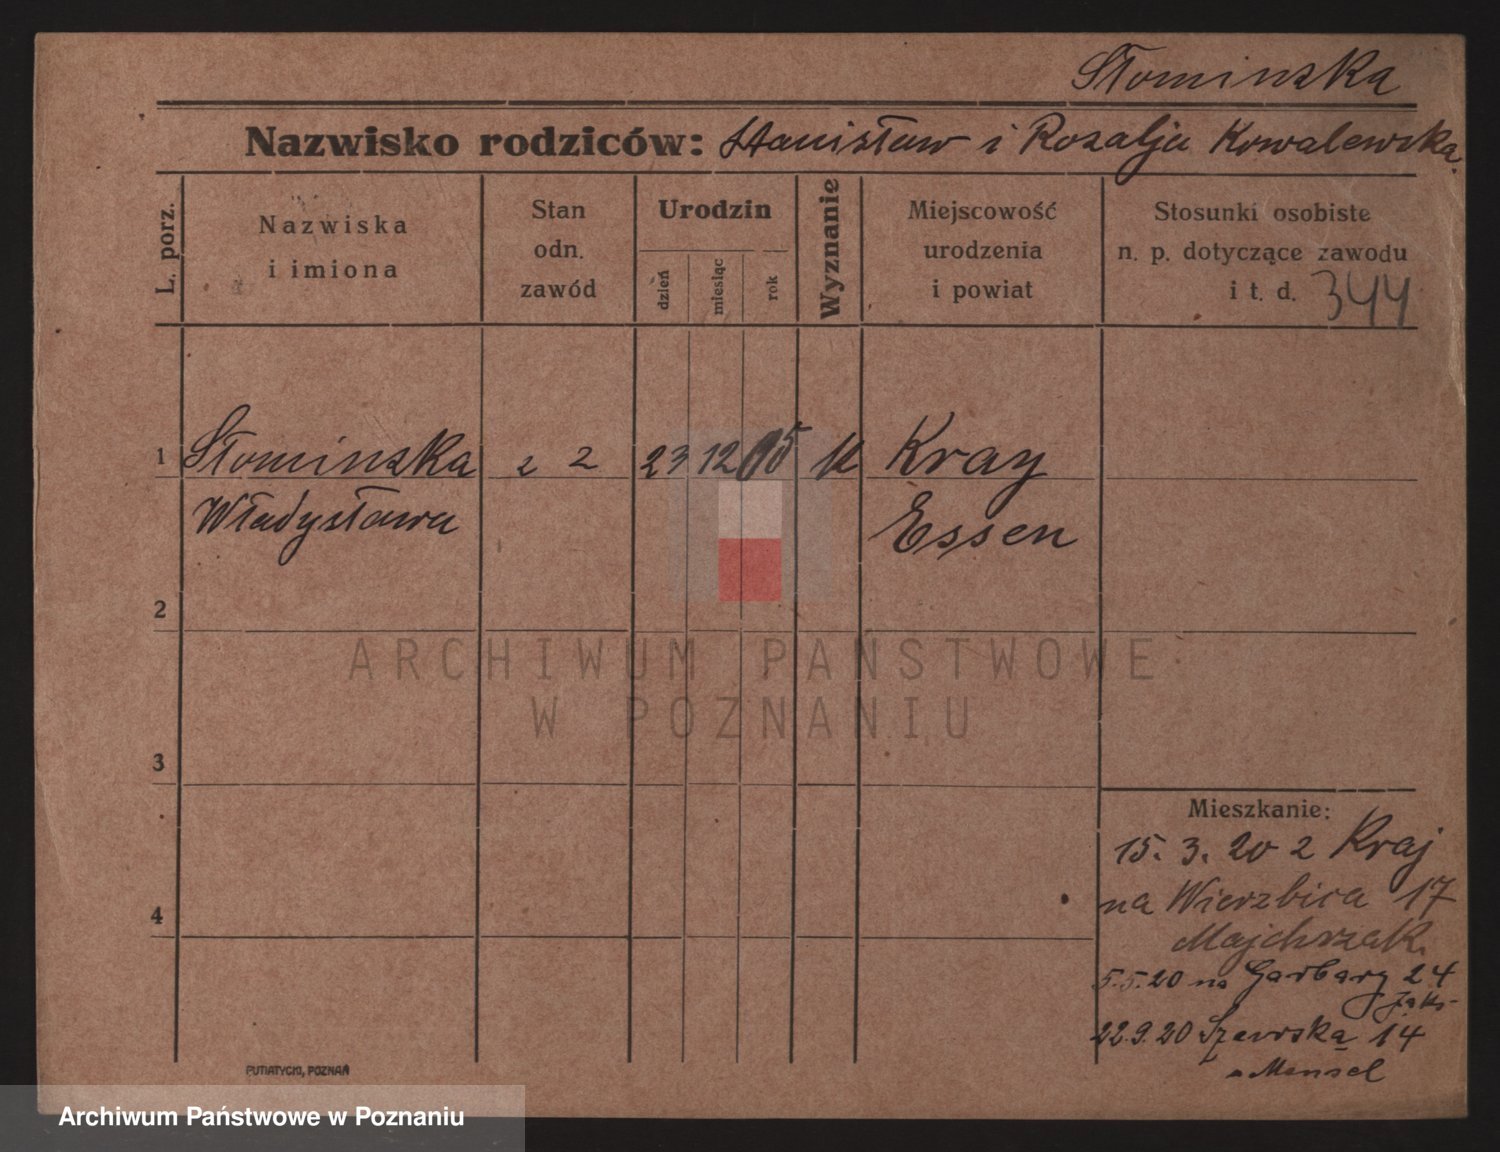 Słominska
Nazwisko rodziców: Stanisław i Rozalja Kowalewska
L. porz.
Nazwiska
i imiona
Stan
odn.
zawód
Urodzin
dzień
miesiąc
rok
Wyznanie
Miejscowość
urodzenia
i powiat
Stosunki osobiste
n. p. dotyczące zawodu
i t. d. 344
1 Słominska 2 2 23 12 05 k Kray
Władysława Essen
2
ARCHIWUM PAŃSTWOWE
W POZNANIU
3
Mieszkanie:
15. 3. 20 z Kraj
na Wierzbica 17
Majchrzak.
4
5.5.20 na Garbary 24
22.9.20 Szewską 14
Mensel
PUTIATYCKI, POZNAŃ
Archiwum Państwowe w Poznaniu